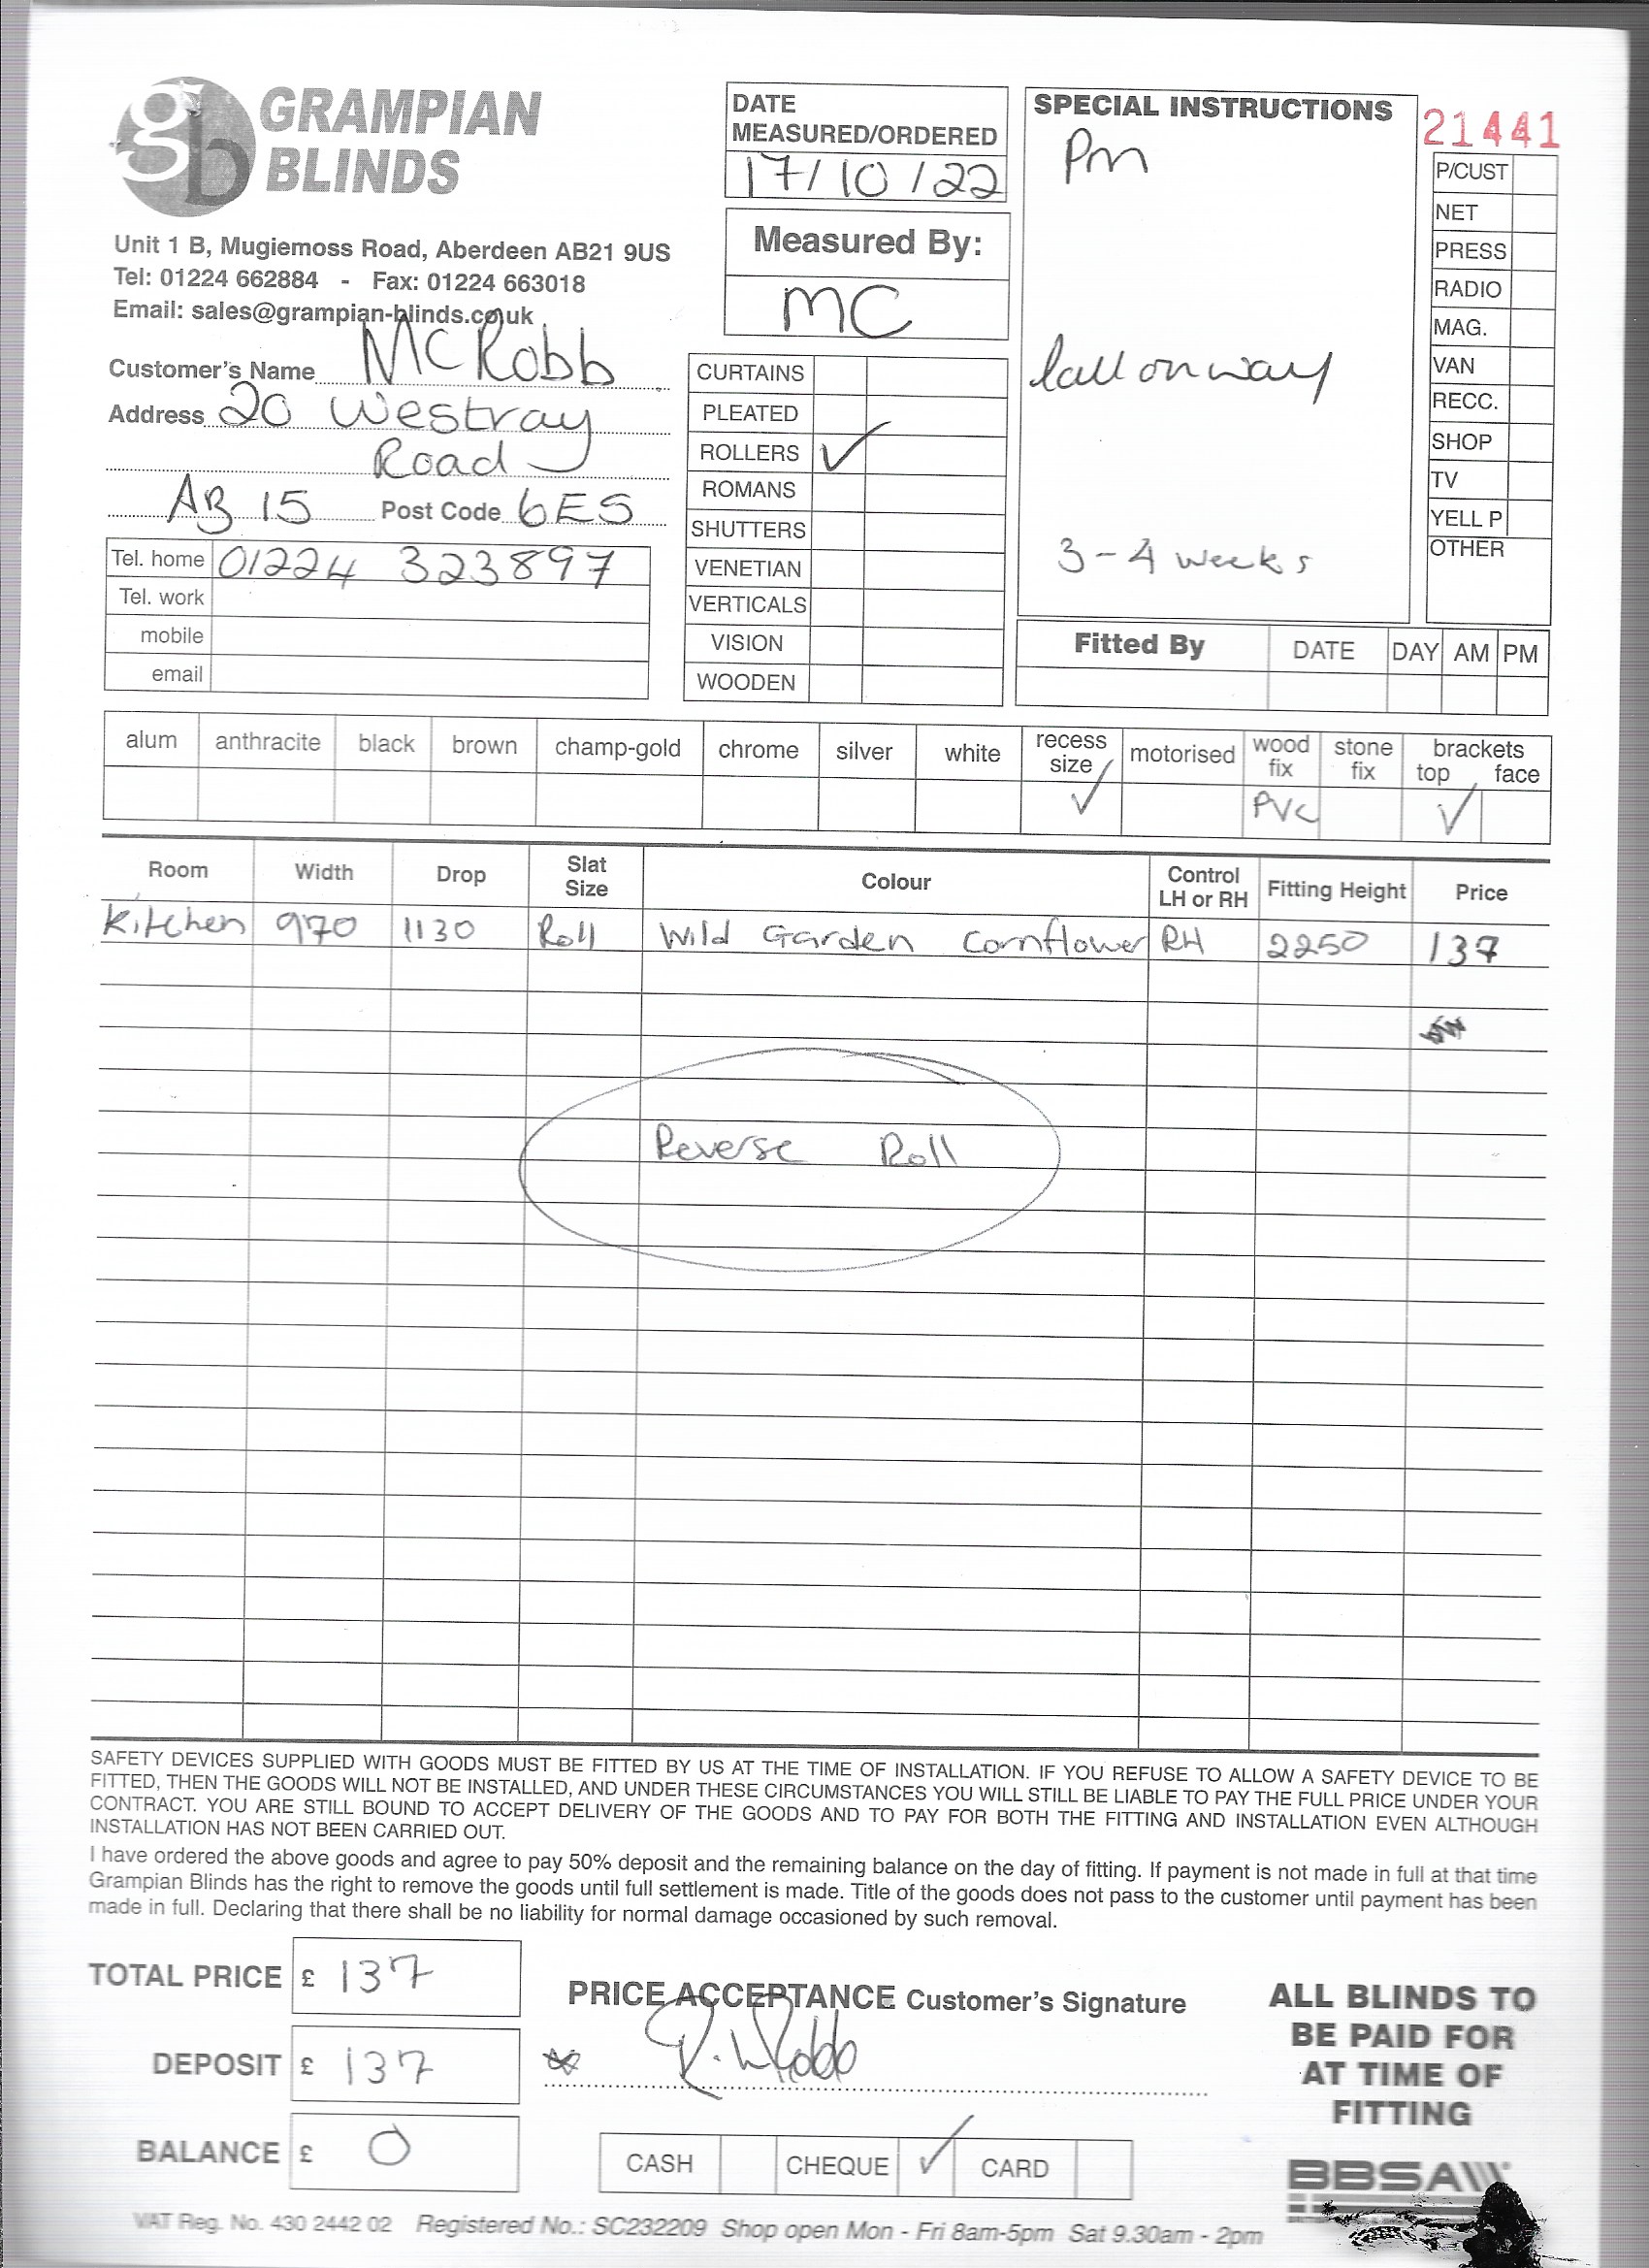 gb GRAMPIAN
BLINDS
Unit 1 B, Mugiemoss Road, Aberdeen AB21 9US
Tel: 01224 662884 - Fax: 01224 663018
Email: sales@grampian-blinds.co.uk
Customer's Name McRobb
Address 20 Westray
Road
AB 15 Post Code 6ES
Tel. home 01224 323897
Tel. work
mobile
email
DATE
MEASURED/ORDERED
17/10/22
Measured By:
MC
CURTAINS
PLEATED
ROLLERS ✓
ROMANS
SHUTTERS
VENETIAN
VERTICALS
VISION
WOODEN
SPECIAL INSTRUCTIONS
Pm
Call on way
3-4 weeks
21441
P/CUST
NET
PRESS
RADIO
MAG.
VAN
RECC.
SHOP
TV
YELL P
OTHER
Fitted By DATE DAY AM PM
alum anthracite black brown champ-gold chrome silver white recess size motorised wood fix stone fix brackets top face
✓ PVC ✓
Room Width Drop Slat Size Colour Control LH or RH Fitting Height Price
Kitchen 970 1130 Roll Wild Garden Cornflower RH 2250 137
Reverse Roll
SAFETY DEVICES SUPPLIED WITH GOODS MUST BE FITTED BY US AT THE TIME OF INSTALLATION. IF YOU REFUSE TO ALLOW A SAFETY DEVICE TO BE
FITTED, THEN THE GOODS WILL NOT BE INSTALLED, AND UNDER THESE CIRCUMSTANCES YOU WILL STILL BE LIABLE TO PAY THE FULL PRICE UNDER YOUR
CONTRACT. YOU ARE STILL BOUND TO ACCEPT DELIVERY OF THE GOODS AND TO PAY FOR BOTH THE FITTING AND INSTALLATION EVEN ALTHOUGH
INSTALLATION HAS NOT BEEN CARRIED OUT.
I have ordered the above goods and agree to pay 50% deposit and the remaining balance on the day of fitting. If payment is not made in full at that time
Grampian Blinds has the right to remove the goods until full settlement is made. Title of the goods does not pass to the customer until payment has been
made in full. Declaring that there shall be no liability for normal damage occasioned by such removal.
TOTAL PRICE £ 137
DEPOSIT £ 137
BALANCE £ 0
PRICE ACCEPTANCE Customer's Signature
CASH CHEQUE ✓ CARD
ALL BLINDS TO
BE PAID FOR
AT TIME OF
FITTING
BBSA
VAT Reg. No. 430 2442 02 Registered No.: SC232209 Shop open Mon - Fri 8am-5pm Sat 9.30am - 2pm